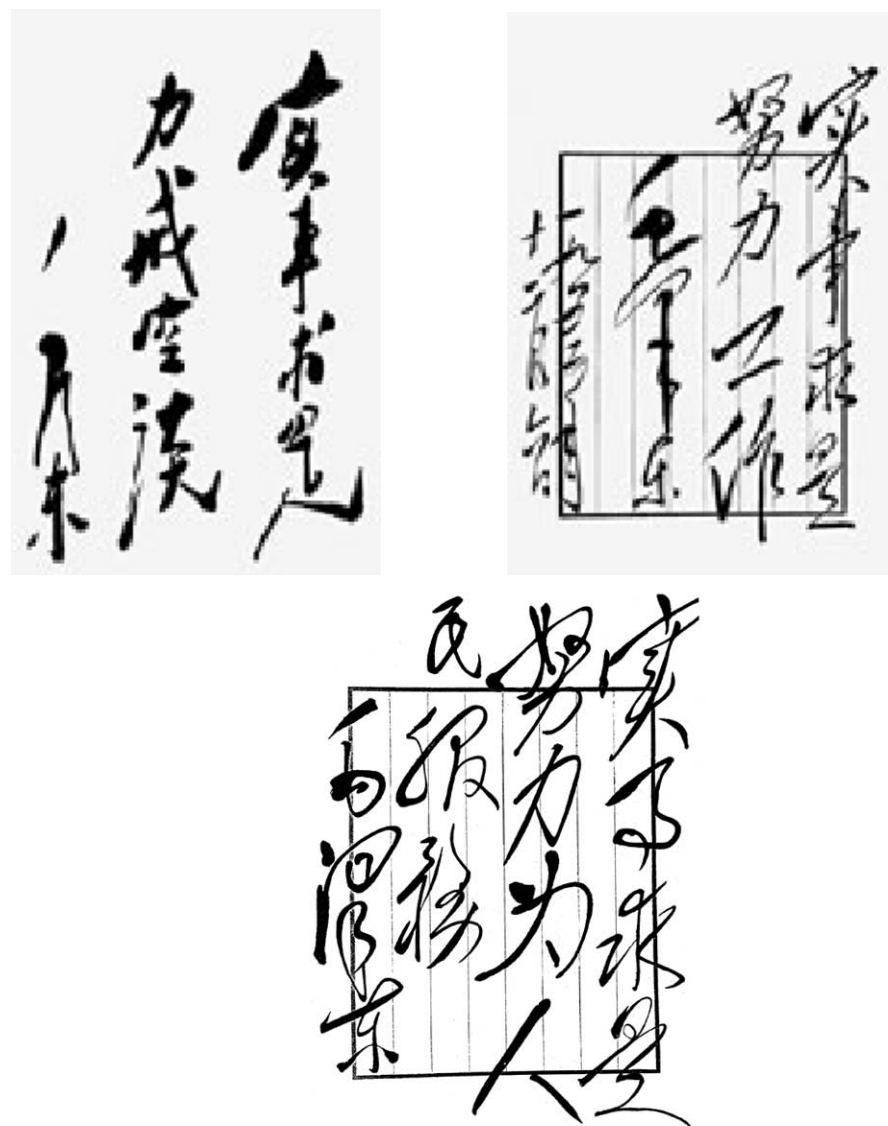 實事求是
力戒空談
毛泽东
实事求是
努力工作
毛泽东
实事求是
努力为人
民服务
毛泽东